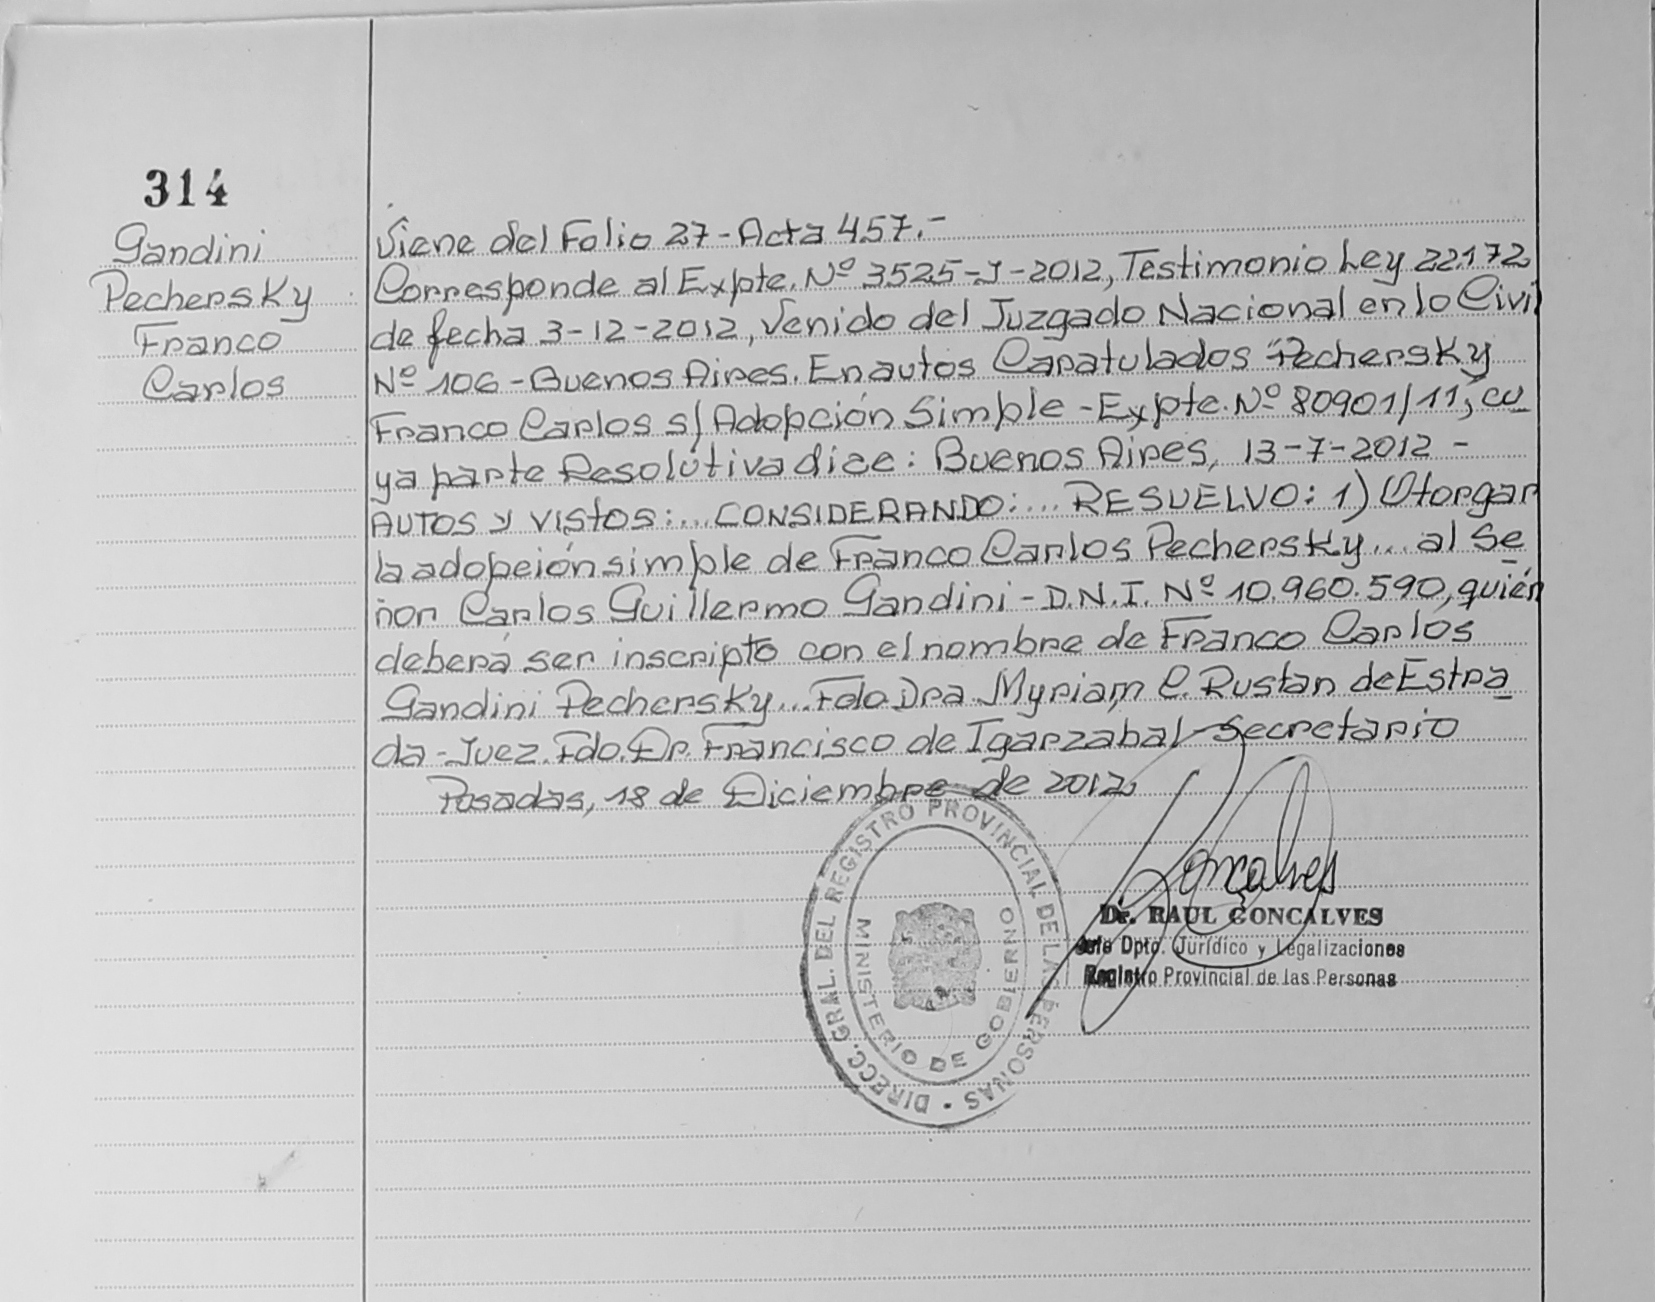 314
Gandini
Pechersky
Franco
Carlos
Viene del Folio 27-Acta 457.-
Corresponde al Expte. Nº 3525-J-2012, Testimonio Ley 22.172,
de fecha 3-12-2012, Venido del Juzgado Nacional en lo Civil
Nº 106-Buenos Aires. En autos Caratulados "Pechersky
Franco Carlos s/Adopción Simple-Expte. Nº 80901/11", cu
ya parte Resolutiva dice: Buenos Aires, 13-7-2012-
AUTOS y VISTOS:... CONSIDERANDO:... RESUELVO: 1) Otorgar
la adopción simple de Franco Carlos Pechersky... al Se
ñor Carlos Guillermo Gandini-D.N.I. Nº 10.960.590, quién
deberá ser inscripto con el nombre de Franco Carlos
Gandini Pechersky... Fdo Dra. Myriam C. Rustan de Estra
da-Juez. Fdo. Dr. Francisco de Igarzabal-Secretario
Posadas, 18 de Diciembre de 2012.
DIRECC. GRAL. DEL REGISTRO PROVINCIAL DE LAS PERSONAS
MINISTERIO DE GOBIERNO
Goncalves
Dr. RAUL GONCALVES
Jefe Dpto. Jurídico y Legalizaciones
Registro Provincial de las Personas